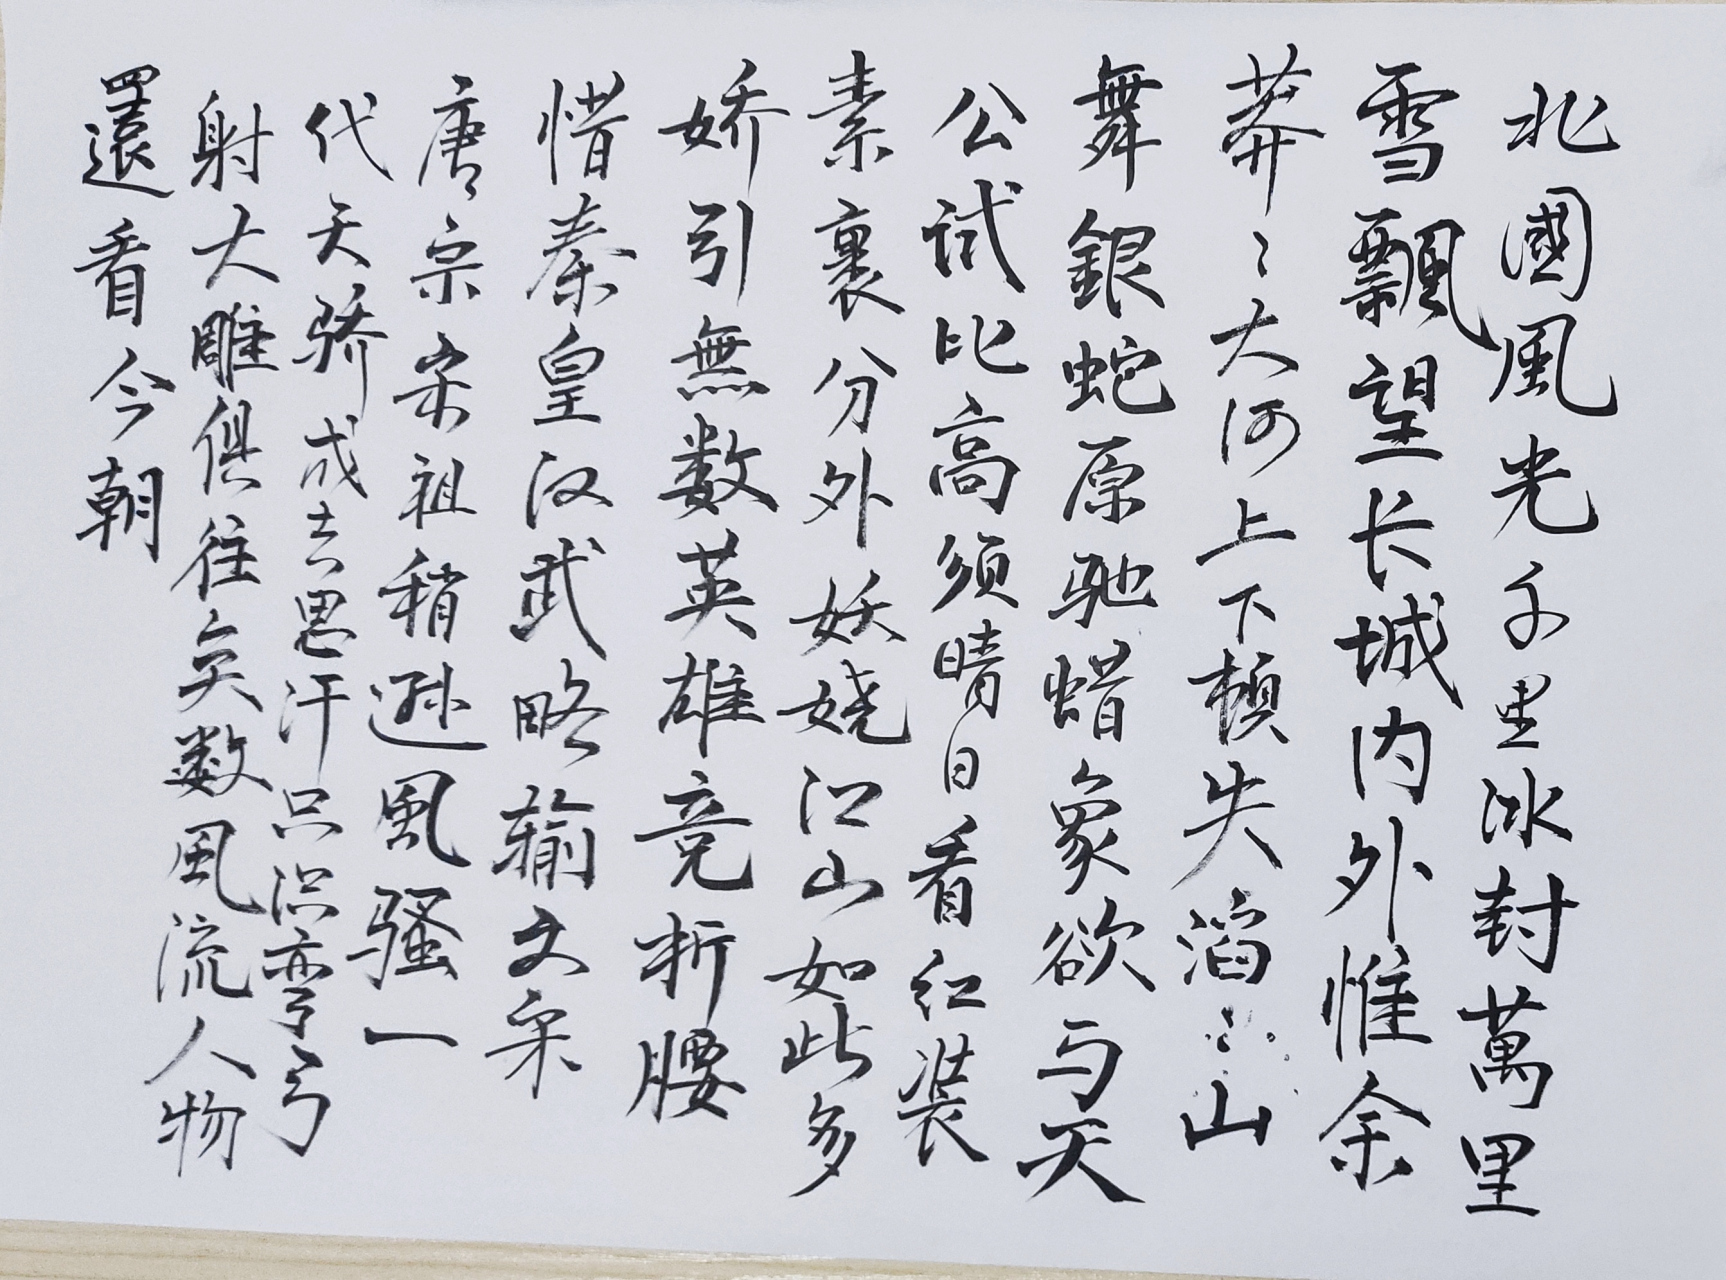 北國風光千里冰封萬里
雪飄望长城内外惟余
莽〻大河上下頓失滔〻山
舞銀蛇原驰蜡象欲与天
公试比高须晴日看红装
素裹分外妖娆江山如此多
娇引無数英雄竞折腰
惜秦皇汉武略输文采
唐宗宋祖稍逊風骚一
代天骄成吉思汗只识弯弓
射大雕俱往矣数風流人物
還看今朝